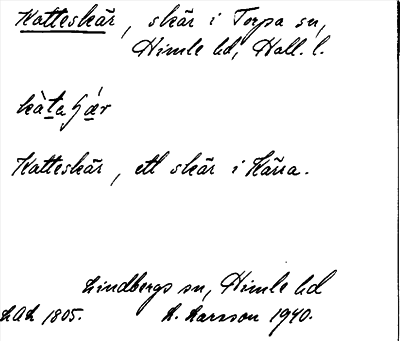 Katteskär, skär i Torpa sn,
Himle hd, Hall. l.
kàtaʃǽr
Katteskär, ett skär i Kärra.
Lindbergs sn, Himle hd
LAL 1805. H. Larsson 1940.